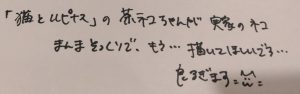 「猫とルピナス」の茶ネコちゃんが 実家のネコ
まんまそっくりで、もう… 描いてほしいくらい…
良すぎます